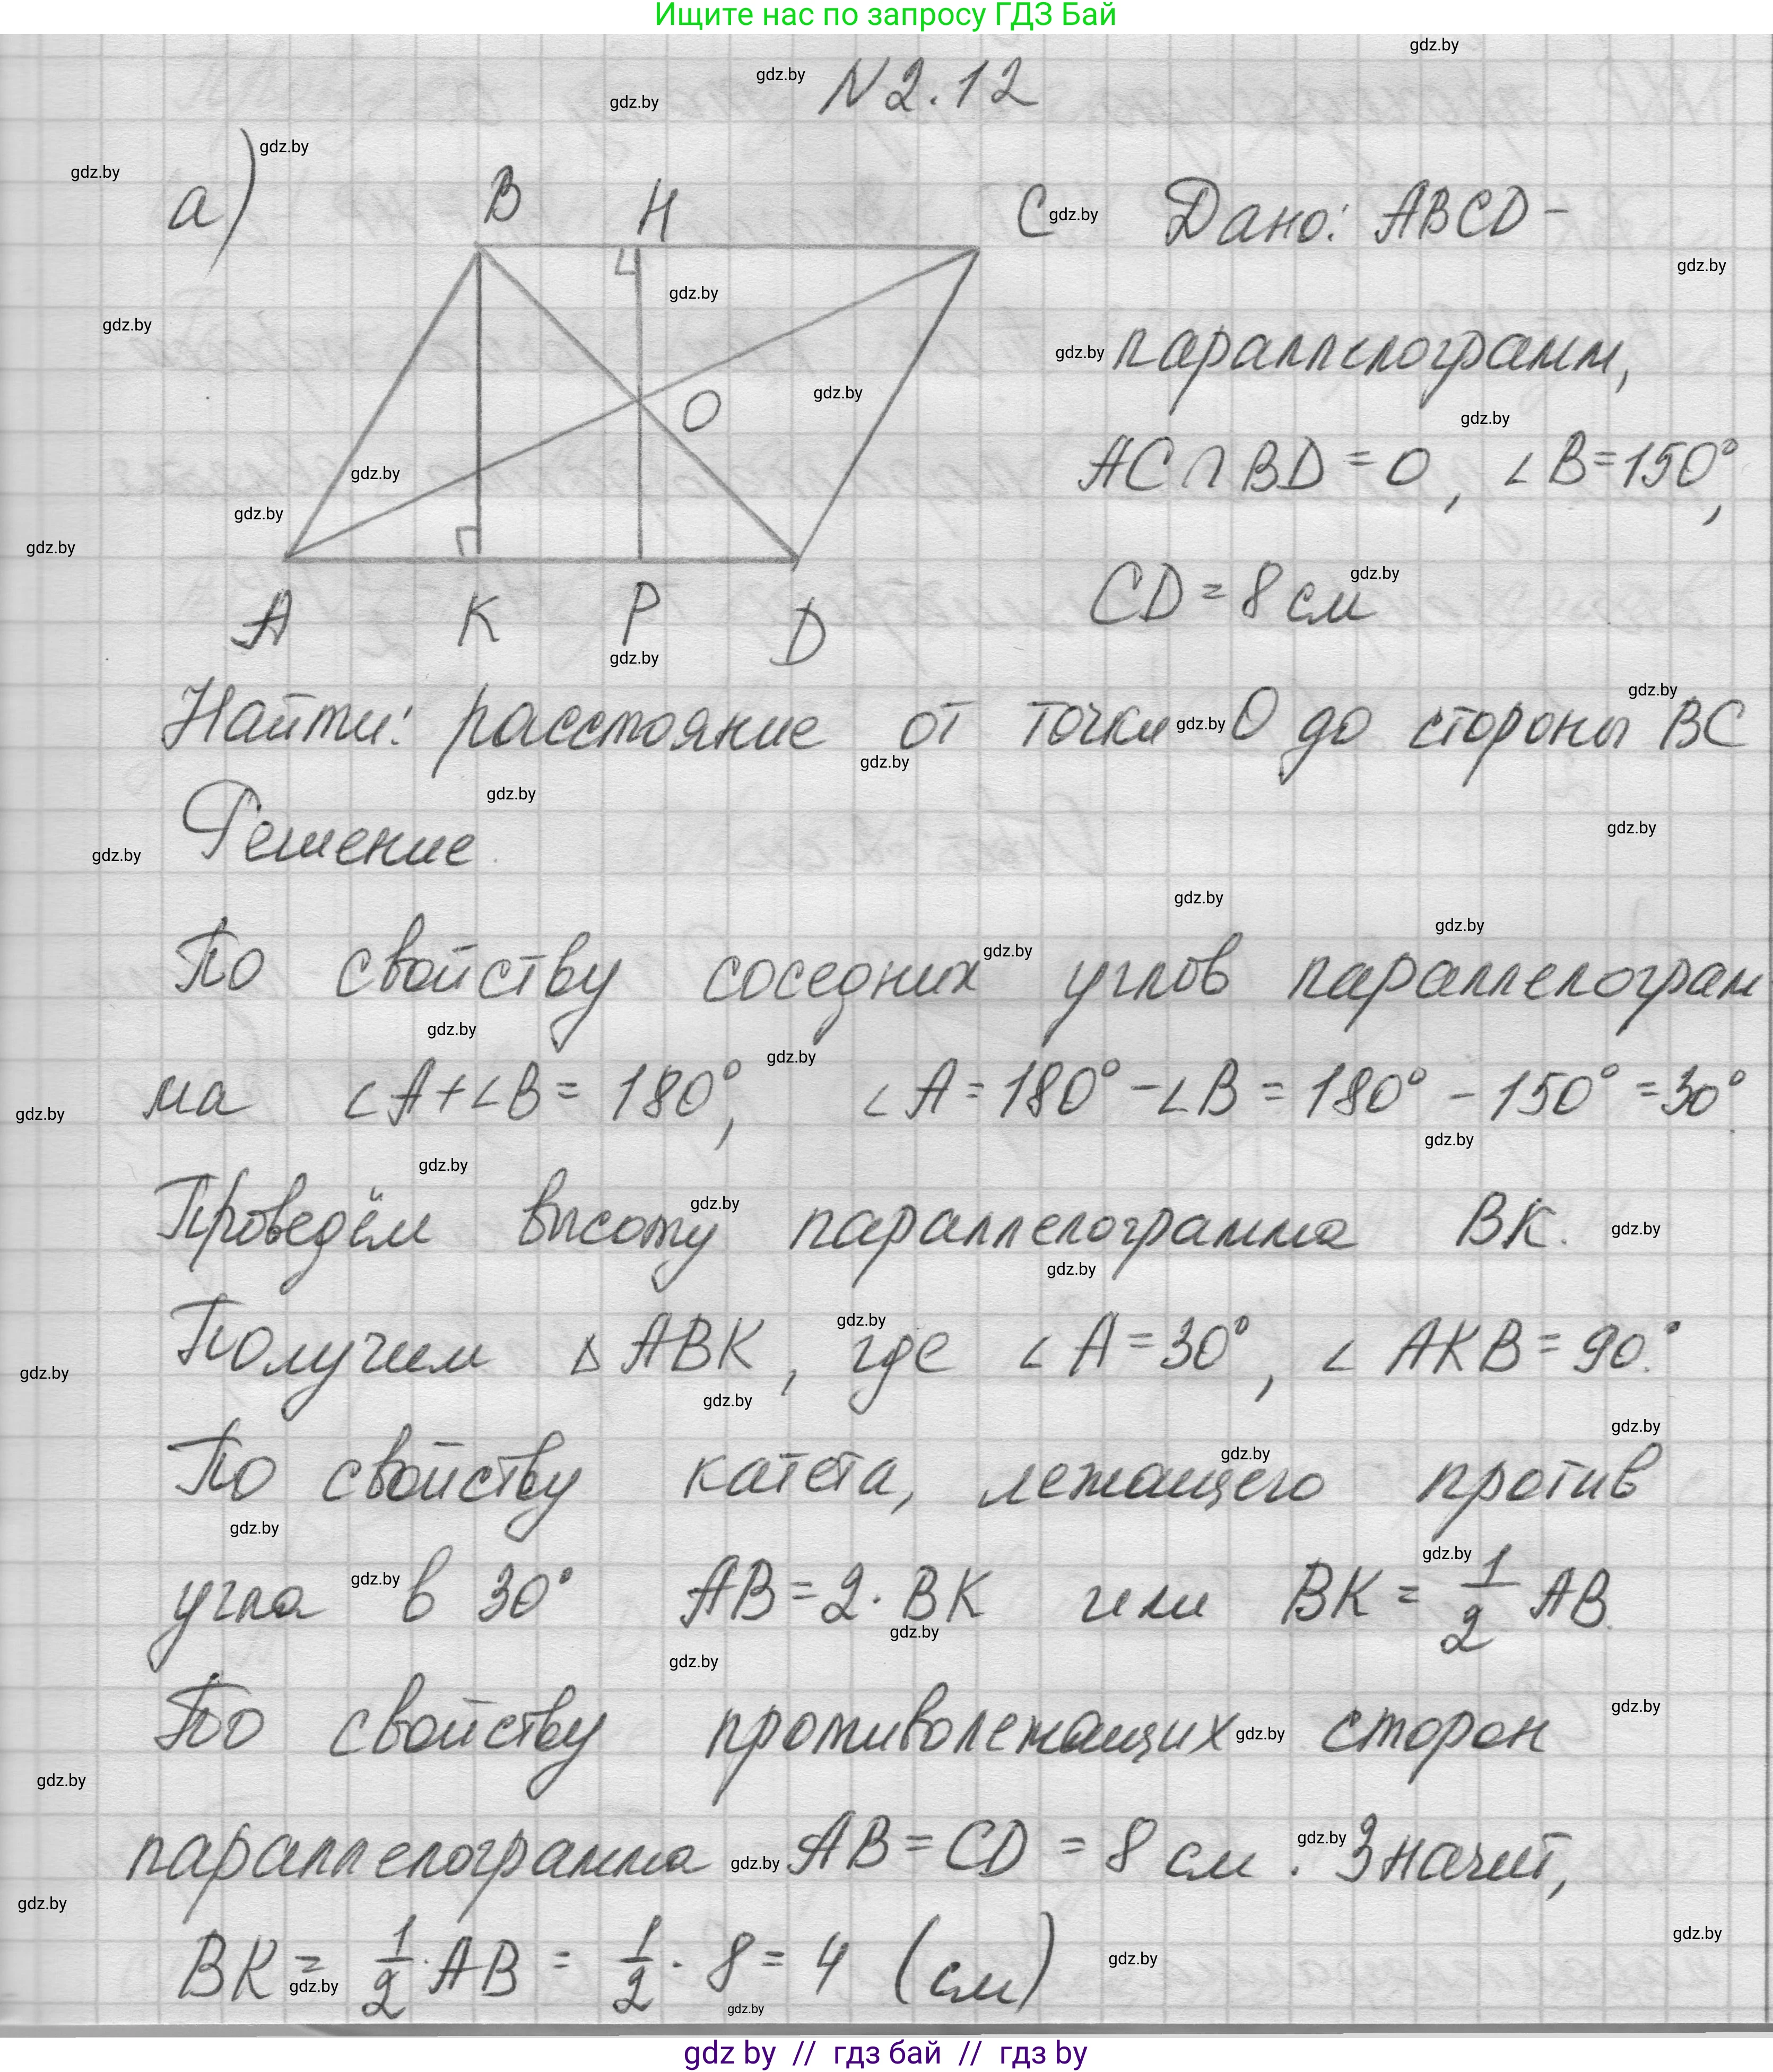 Ищите нас по запросу ГДЗ Бай
N 2.12
а)
B H C
O
A K P D
Дано: ABCD –
параллелограмм,
AC ∩ BD = O, ∠B = 150°,
CD = 8 см
Найти: расстояние от точки O до стороны BC
Решение.
По свойству соседних углов параллелограм
ма ∠A + ∠B = 180°, ∠A = 180° – ∠B = 180° – 150° = 30°
Проведём высоту параллелограмма BK.
Получим △ ABK, где ∠A = 30°, ∠AKB = 90°.
По свойству катета, лежащего против
угла в 30° AB = 2 · BK или BK = 1/2 AB.
По свойству противолежащих сторон
параллелограмма AB = CD = 8 см. Значит,
BK = 1/2 · AB = 1/2 · 8 = 4 (см)
gdz by // гдз бай // гдз by